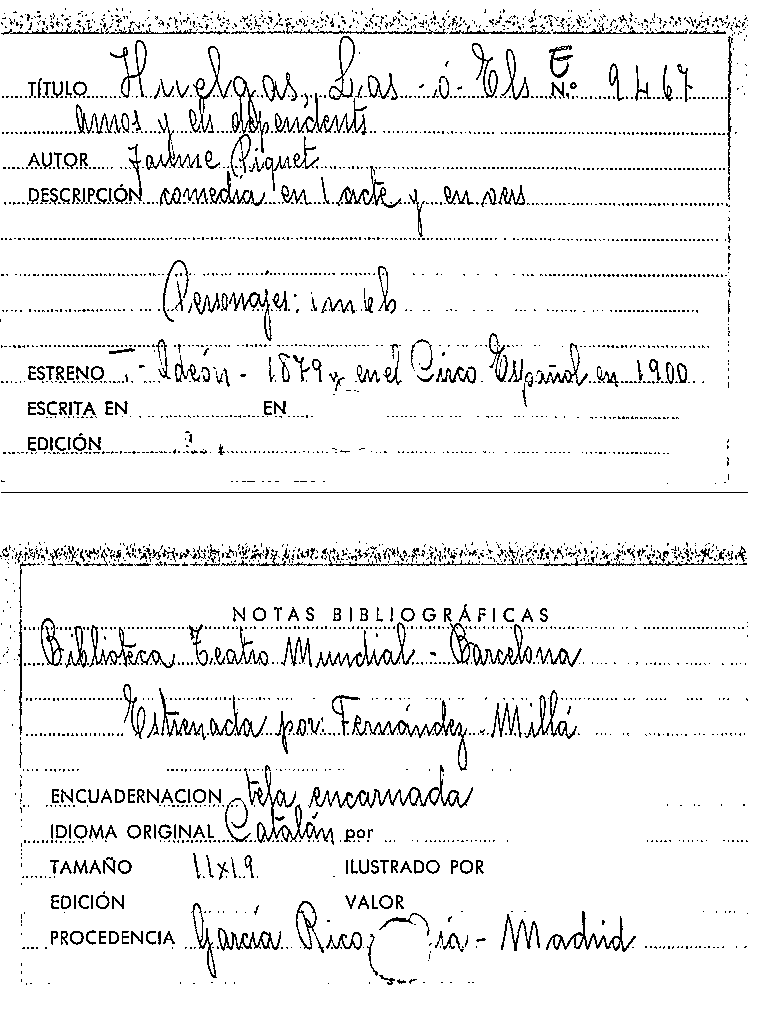 TÍTULO Huelgas, Las - ó - Els E N.º 9467
amos y els dependents
AUTOR Jaume Piquet
DESCRIPCIÓN comedia en 1 acte y en vers
Personajes:
ESTRENO T.- Odeón - 1879 y en el Circo Español en 1900
ESCRITA EN EN
EDICIÓN
NOTAS BIBLIOGRÁFICAS
Biblioteca Teatro Mundial - Barcelona
Estrenada por: Fernández - Millá
ENCUADERNACION tela encarnada
IDIOMA ORIGINAL Catalán por
TAMAÑO 11x19 ILUSTRADO POR
EDICIÓN VALOR
PROCEDENCIA García Rico - Madrid